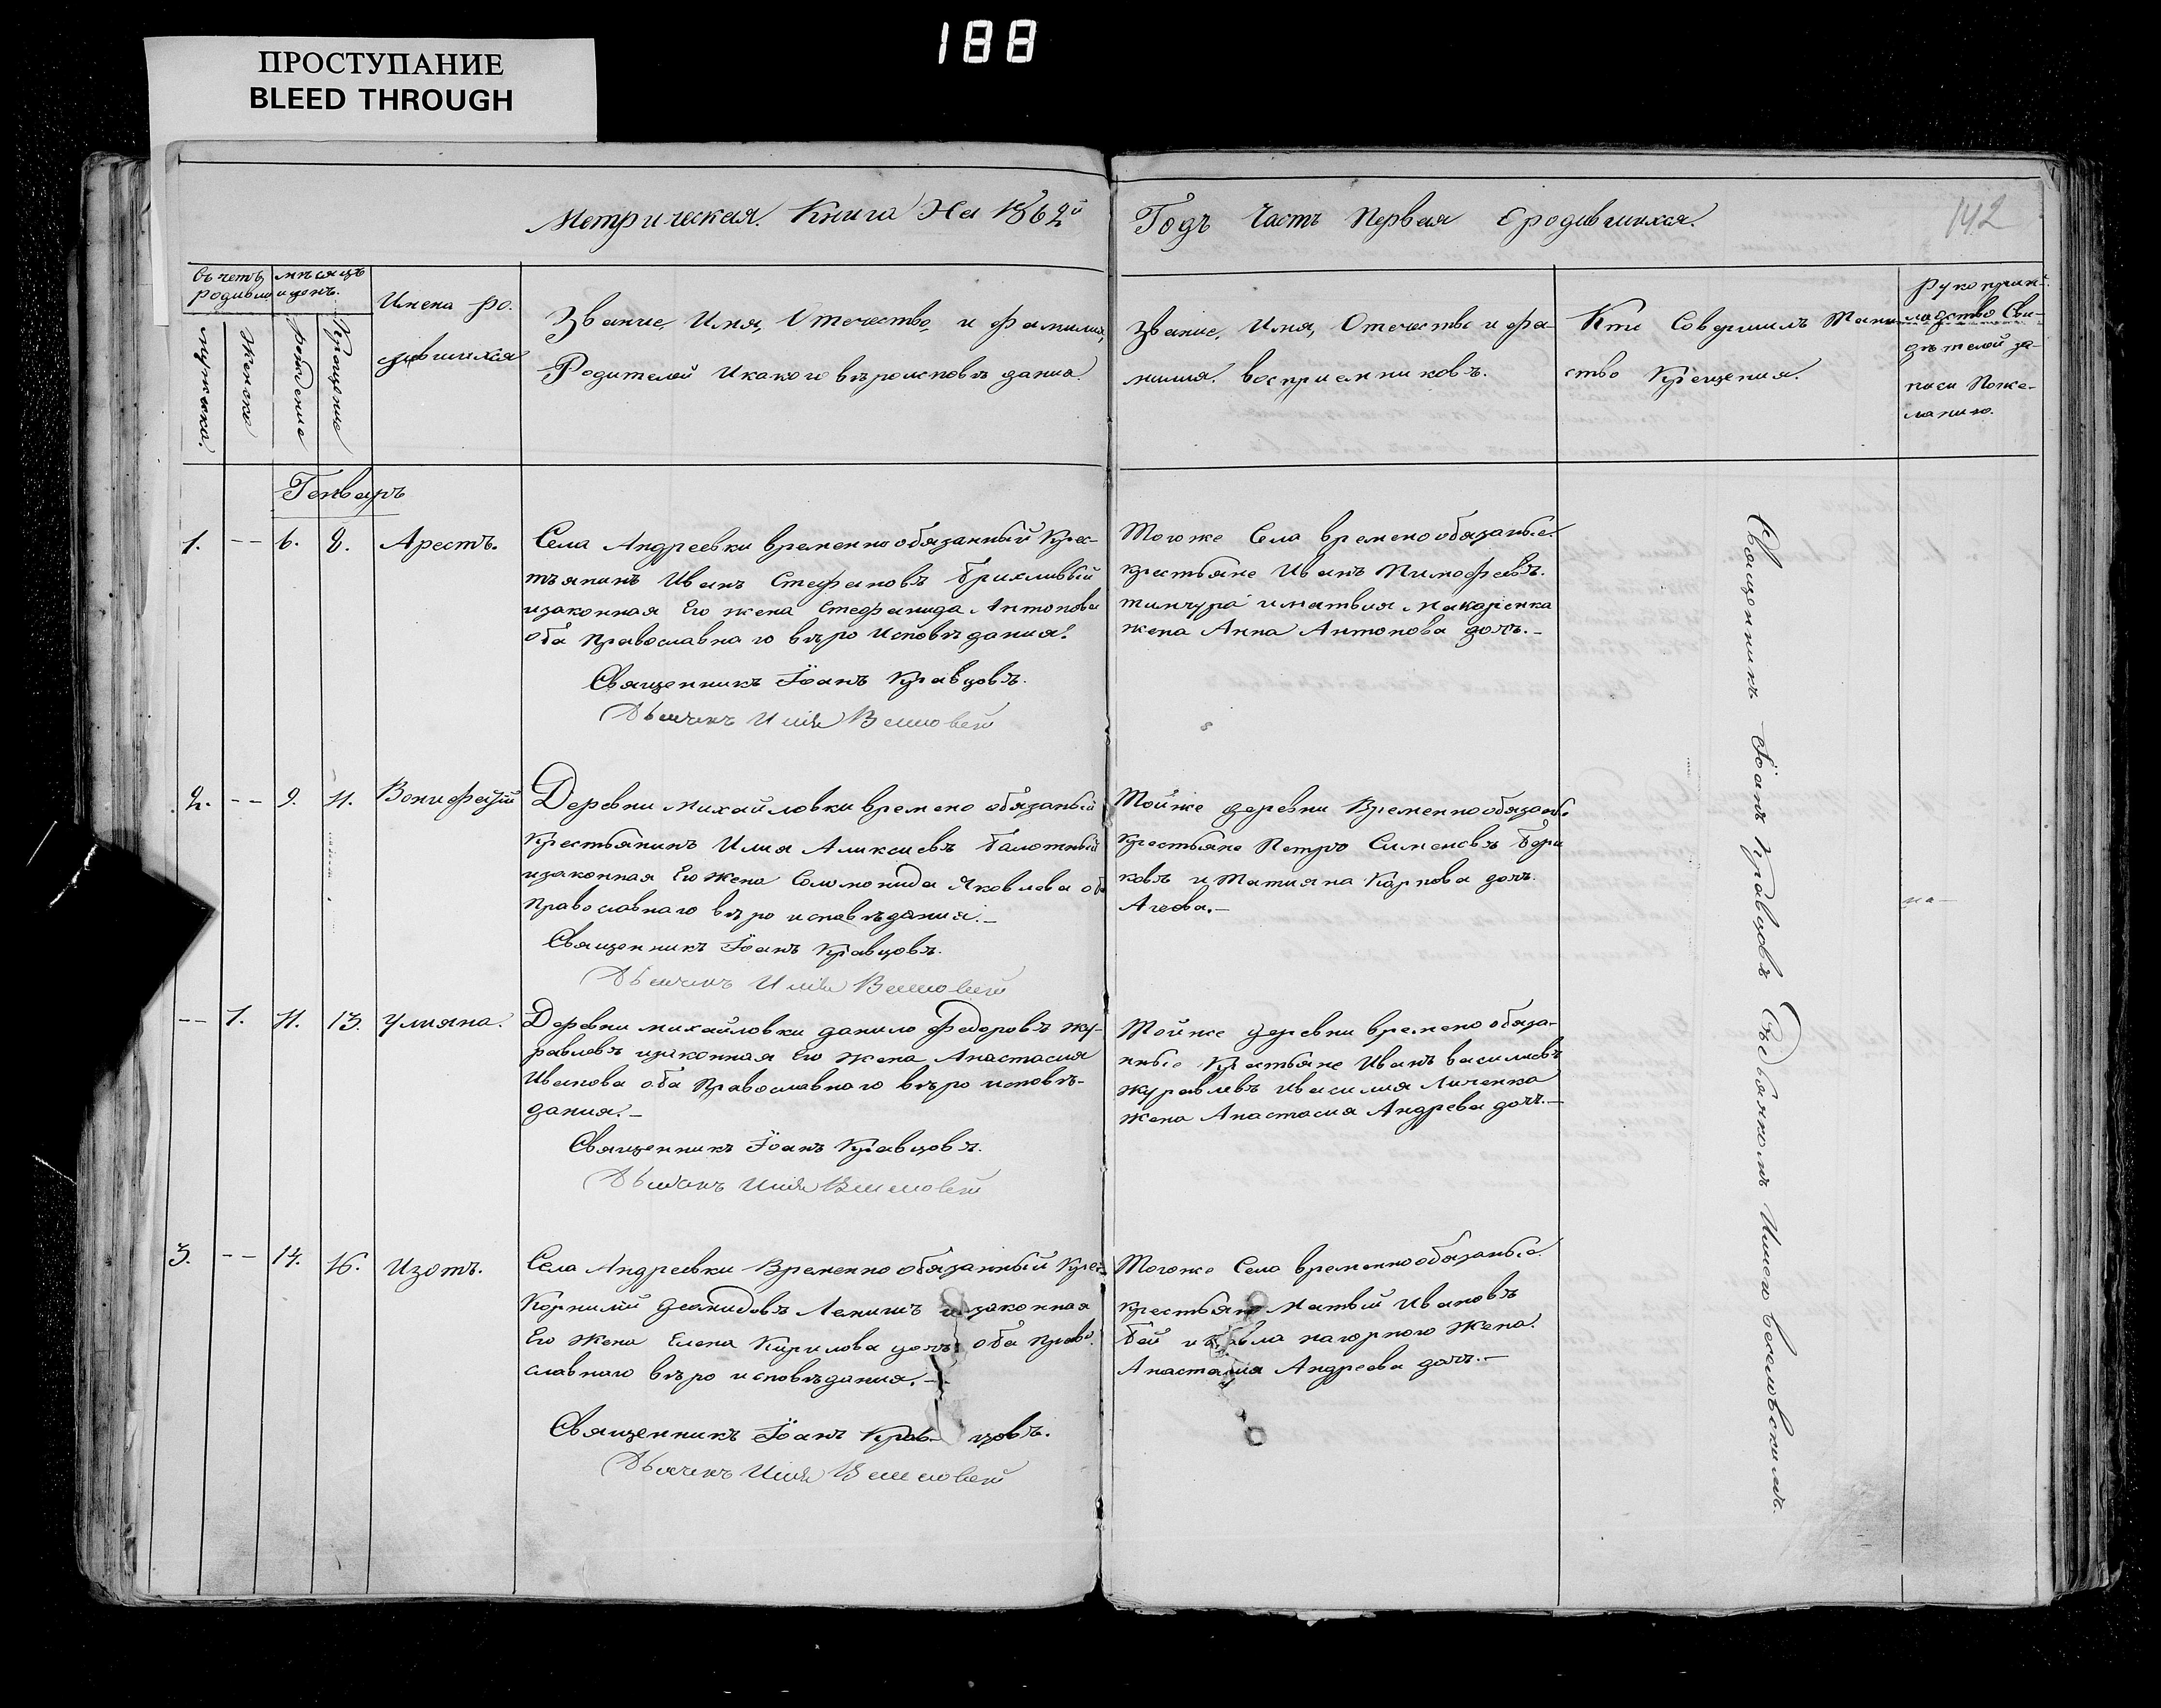 188
ПРОСТУПАНИЕ
BLEED THROUGH
Метрическая Книга На 1862й
Годъ Часть Первая О родившихся.
142
Счетъ родив.
мѣсяцъ и день.
мужска.
Женска
рождение
Крещение
Имена ро-
дившихся
Звание, Имя, Отечество, и фамилия,
Родителей И какого вѣроисповѣдания.
Звание, Имя, Отечество и фа-
милия. восприемниковъ.
Кто Совершилъ Таин-
ство Крещения.
рукоприк-
ладство Сви-
дѣтелей за-
писи Поже-
ланию.
Генварь
1. -- 6. 8. Арестъ.
Села Андреевки временнообязанный Крес-
тьянинъ Иванъ Стефановъ Брихливый
изаконная Его жена Стефанида Антонова
оба православнаго вѣро Исповѣдания.
Священникъ Іоанъ Кравцовъ.
Дьячекъ Илія
Тогоже Села временообязаные
крестьяне Иванъ Тимофеевъ.
тимчура иматвия Макаренка
жена Анна Антонова дочь.-
2. -- 9. 11. Вонифатій
Деревни михайловки времено обязаный
Крестьянинъ Илия Аликсиевъ Балотный
изаконная Его жена Соломонида Яковлева об
Православнаго вѣро исповѣдания.-
Священникъ Іоанъ Кравцовъ.
Дьячекъ Илія
Тойже деревни Временнообязаны.
Крестьяне Петръ Сименовъ Бори
ковъ и Татияна Карпова дочь.
Агеева.-
-- 1. 11. 13. Улияна.
Деревни михайловки данило Федоровъ жу-
равлевъ изаконная Его жена Анастасия
Иванова оба Православнаго вѣро исповѣ-
дания.-
Священникъ Іоанъ Кравцовъ.
Дьячекъ Илія
Тойже деревни времено обяза-
нные Крестьяне Иванъ василиевъ
журавлевъ ивасилия Личенка
жена Анастасия Андрева дочь.-
3. -- 14. 16. Изотъ.
Села Андреевки Временно обязанный Крес-
Корнилій Леанидовъ Лениш изаконная
Его жена Елена Кирилова дочь оба право-
славнаго вѣро исповѣдания.-
Священникъ Іоанъ Кравцовъ.
Дьячекъ Илія
Тогоже Села временнообязаные.
крестьяне Матвій Ивановъ
Бей и павла нагорного жена.
Анастасия Андреева дочь.-
Священникъ Іоанъ Кравцовъ Съ Дьячкомъ Илиею